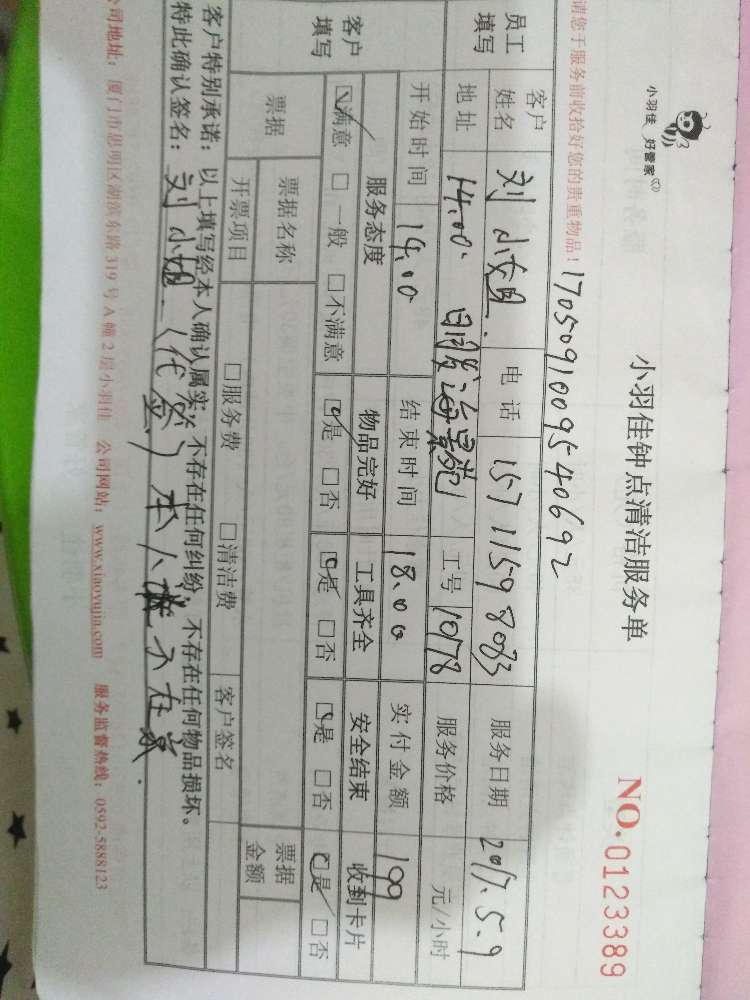 小羽佳 好管家
小羽佳钟点清洁服务单
NO.0123389
请您于服务前收拾好您的贵重物品！1705091009540692
员工填写 客户姓名 刘小姐 电话 15711598083 服务日期 2017.5.9
地址 14.00. 海景苑 工号 1078 服务价格 元/小时
开始时间 14.00 结束时间 18.00 实付金额 199
客户填写 服务态度 物品完好 工具齐全 安全结束 收到卡片
☑满意 □一般 □不满意 ☑是 □否 ☑是 □否 ☑是 □否 ☑是 □否
票据 票据名称 票据金额
开票项目 □服务费 □清洁费 客户签名
客户特别承诺：以上填写经本人确认属实，不存在任何纠纷、不存在任何物品损坏。
特此确认签名：刘小姐（代签）本人不在家.
公司地址：厦门市思明区湖滨东路319号A幢2层小羽佳 公司网站：www.xiaoyujia.com 服务监督热线：0592-5888123